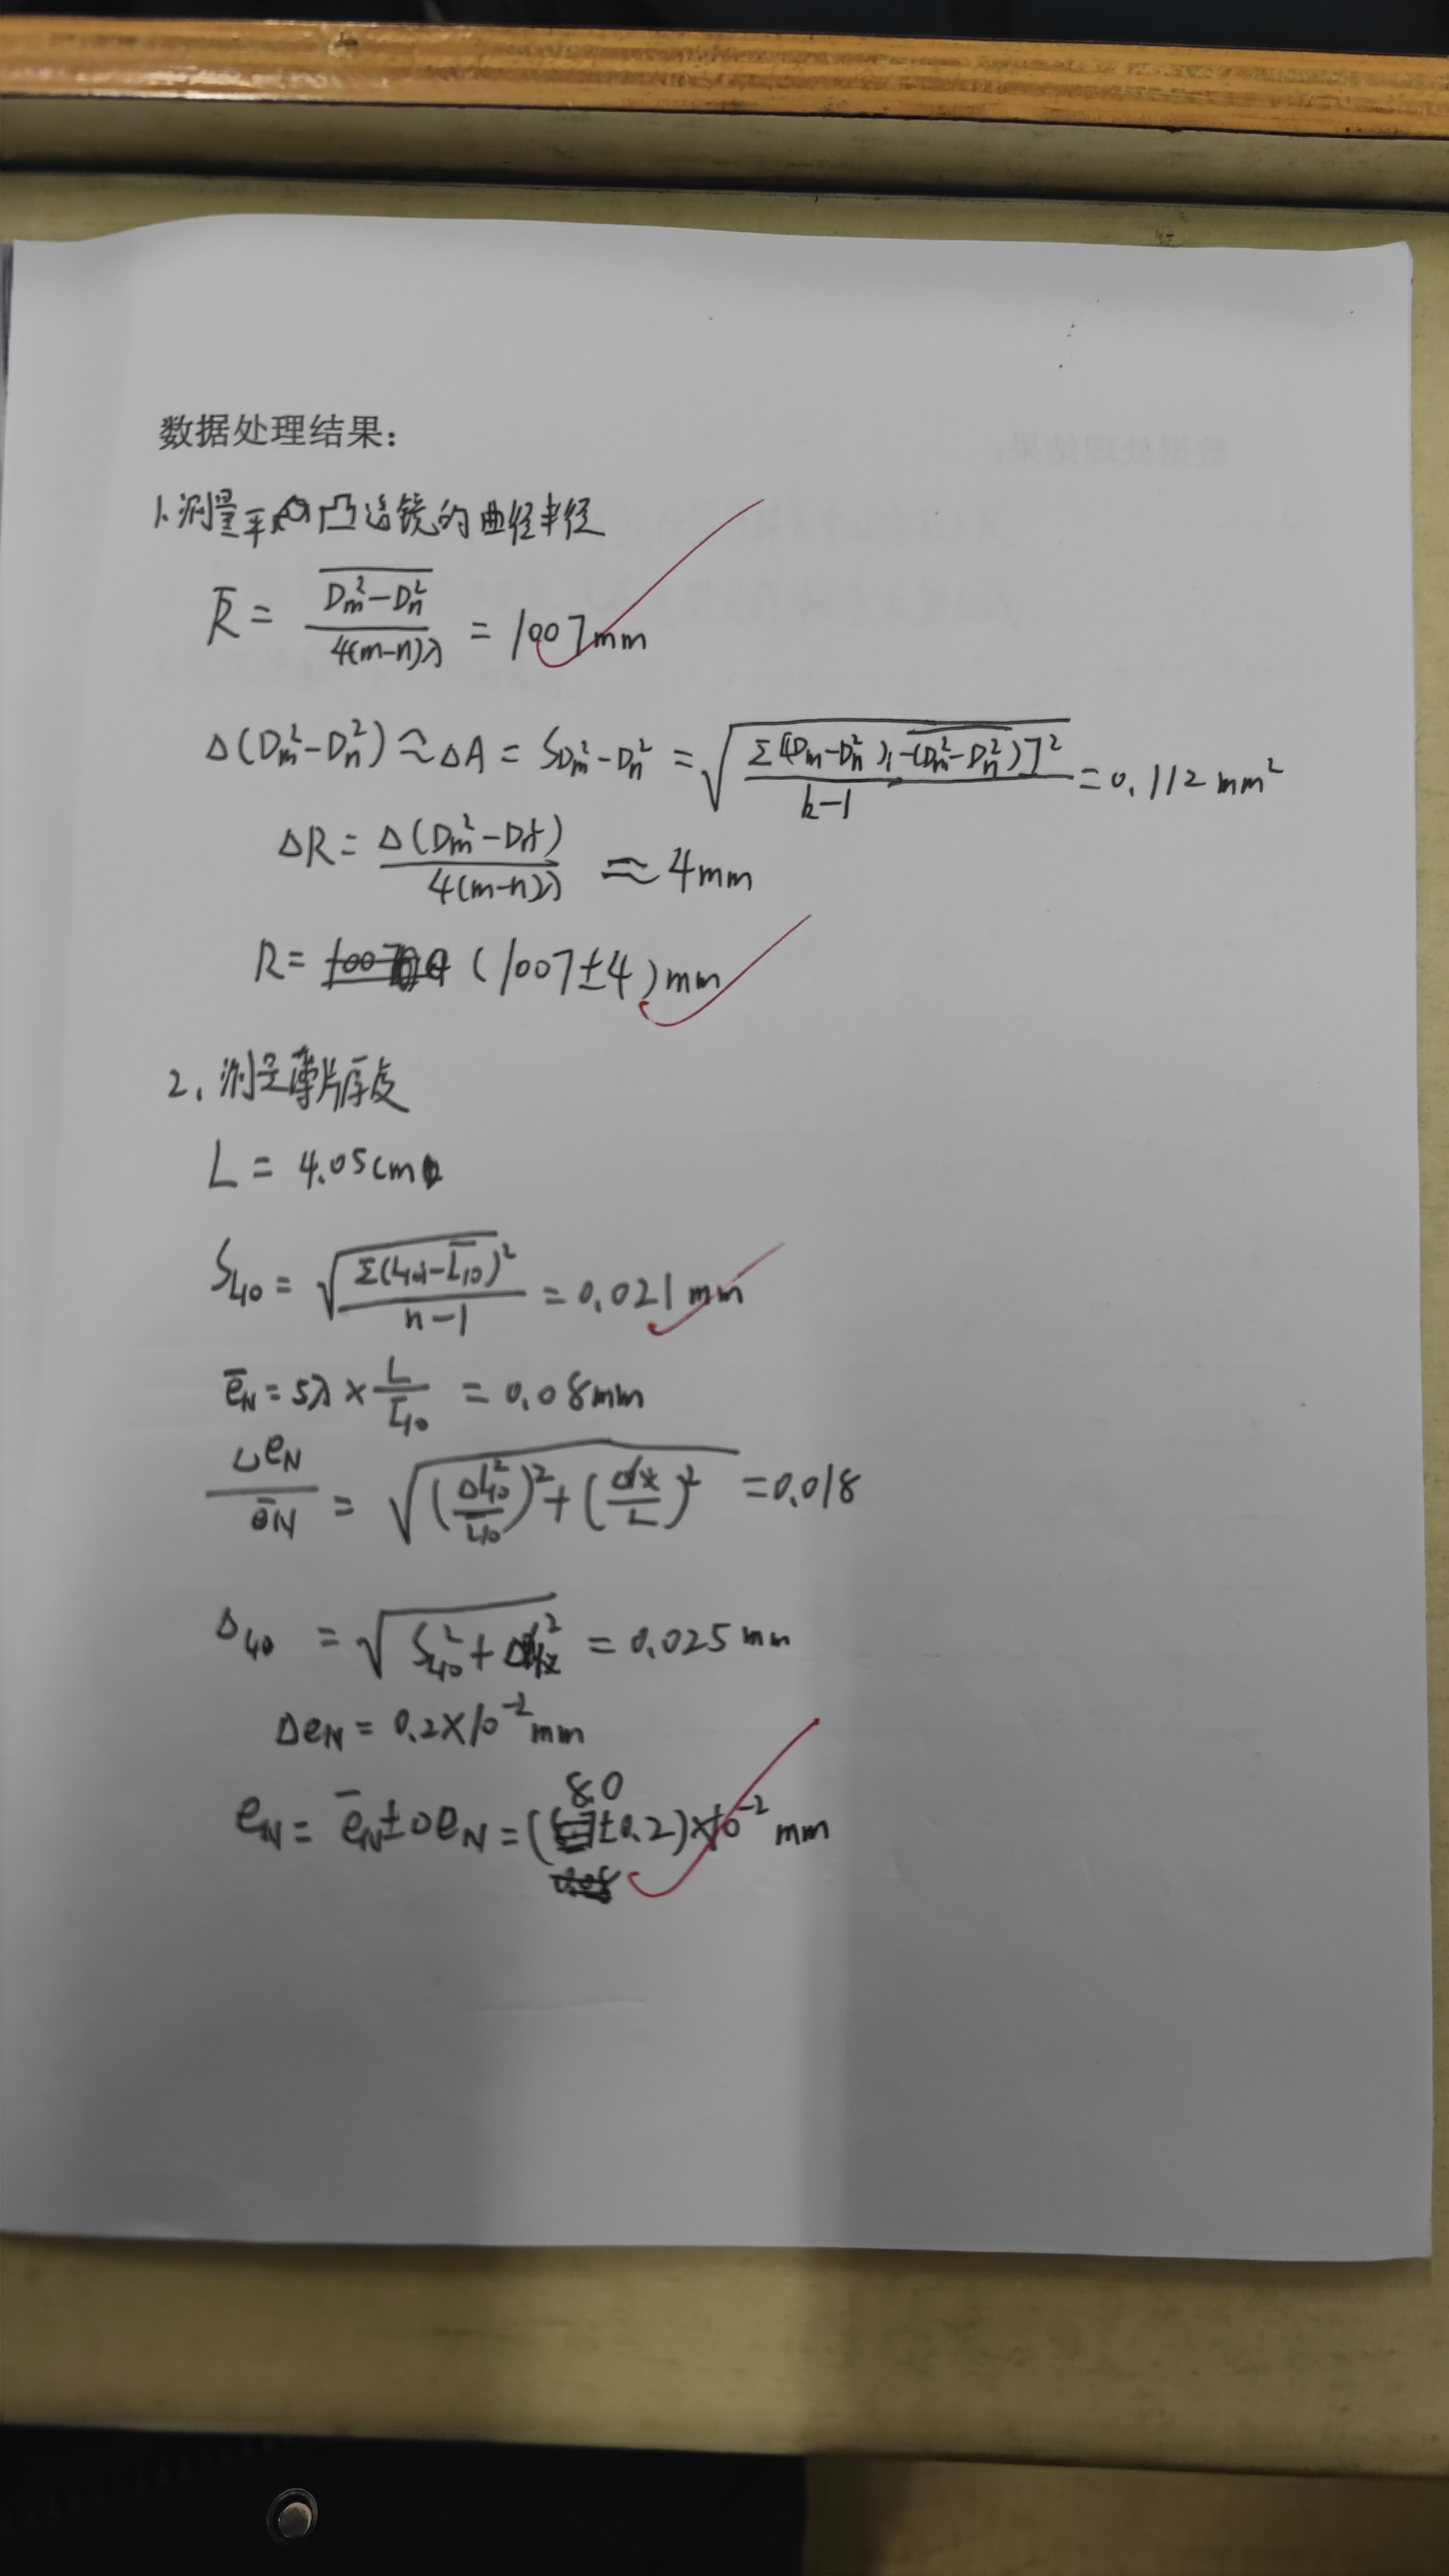 数据处理结果:
1.测量平凸透镜的曲径半径
R̄ = \overline{Dm²-Dn²} / 4(m-n)λ = 1007mm
Δ(Dm²-Dn²)≈ΔA = S Dm²-Dn² = √(Σ[(Dm-Dn²)i-(\overline{Dm²-Dn²})]² / k-1) = 0.112mm²
ΔR = Δ(Dm²-Dn²) / 4(m-n)λ ≈ 4mm
R = (1007±4)mm
2. 测量薄片厚度
L = 4.05cm
SL10 = √(Σ(L10i-L̄10)² / n-1) = 0.021mm
ēN = 5λ × L / L̄10 = 0.08mm
ΔeN / ēN = √((ΔL10² / L̄10)² + (Δ仪 / L)²) = 0.018
ΔL10 = √(SL10² + Δ仪²) = 0.025mm
ΔeN = 0.2×10⁻²mm
eN = ēN±ΔeN = (8.0±0.2)×10⁻²mm